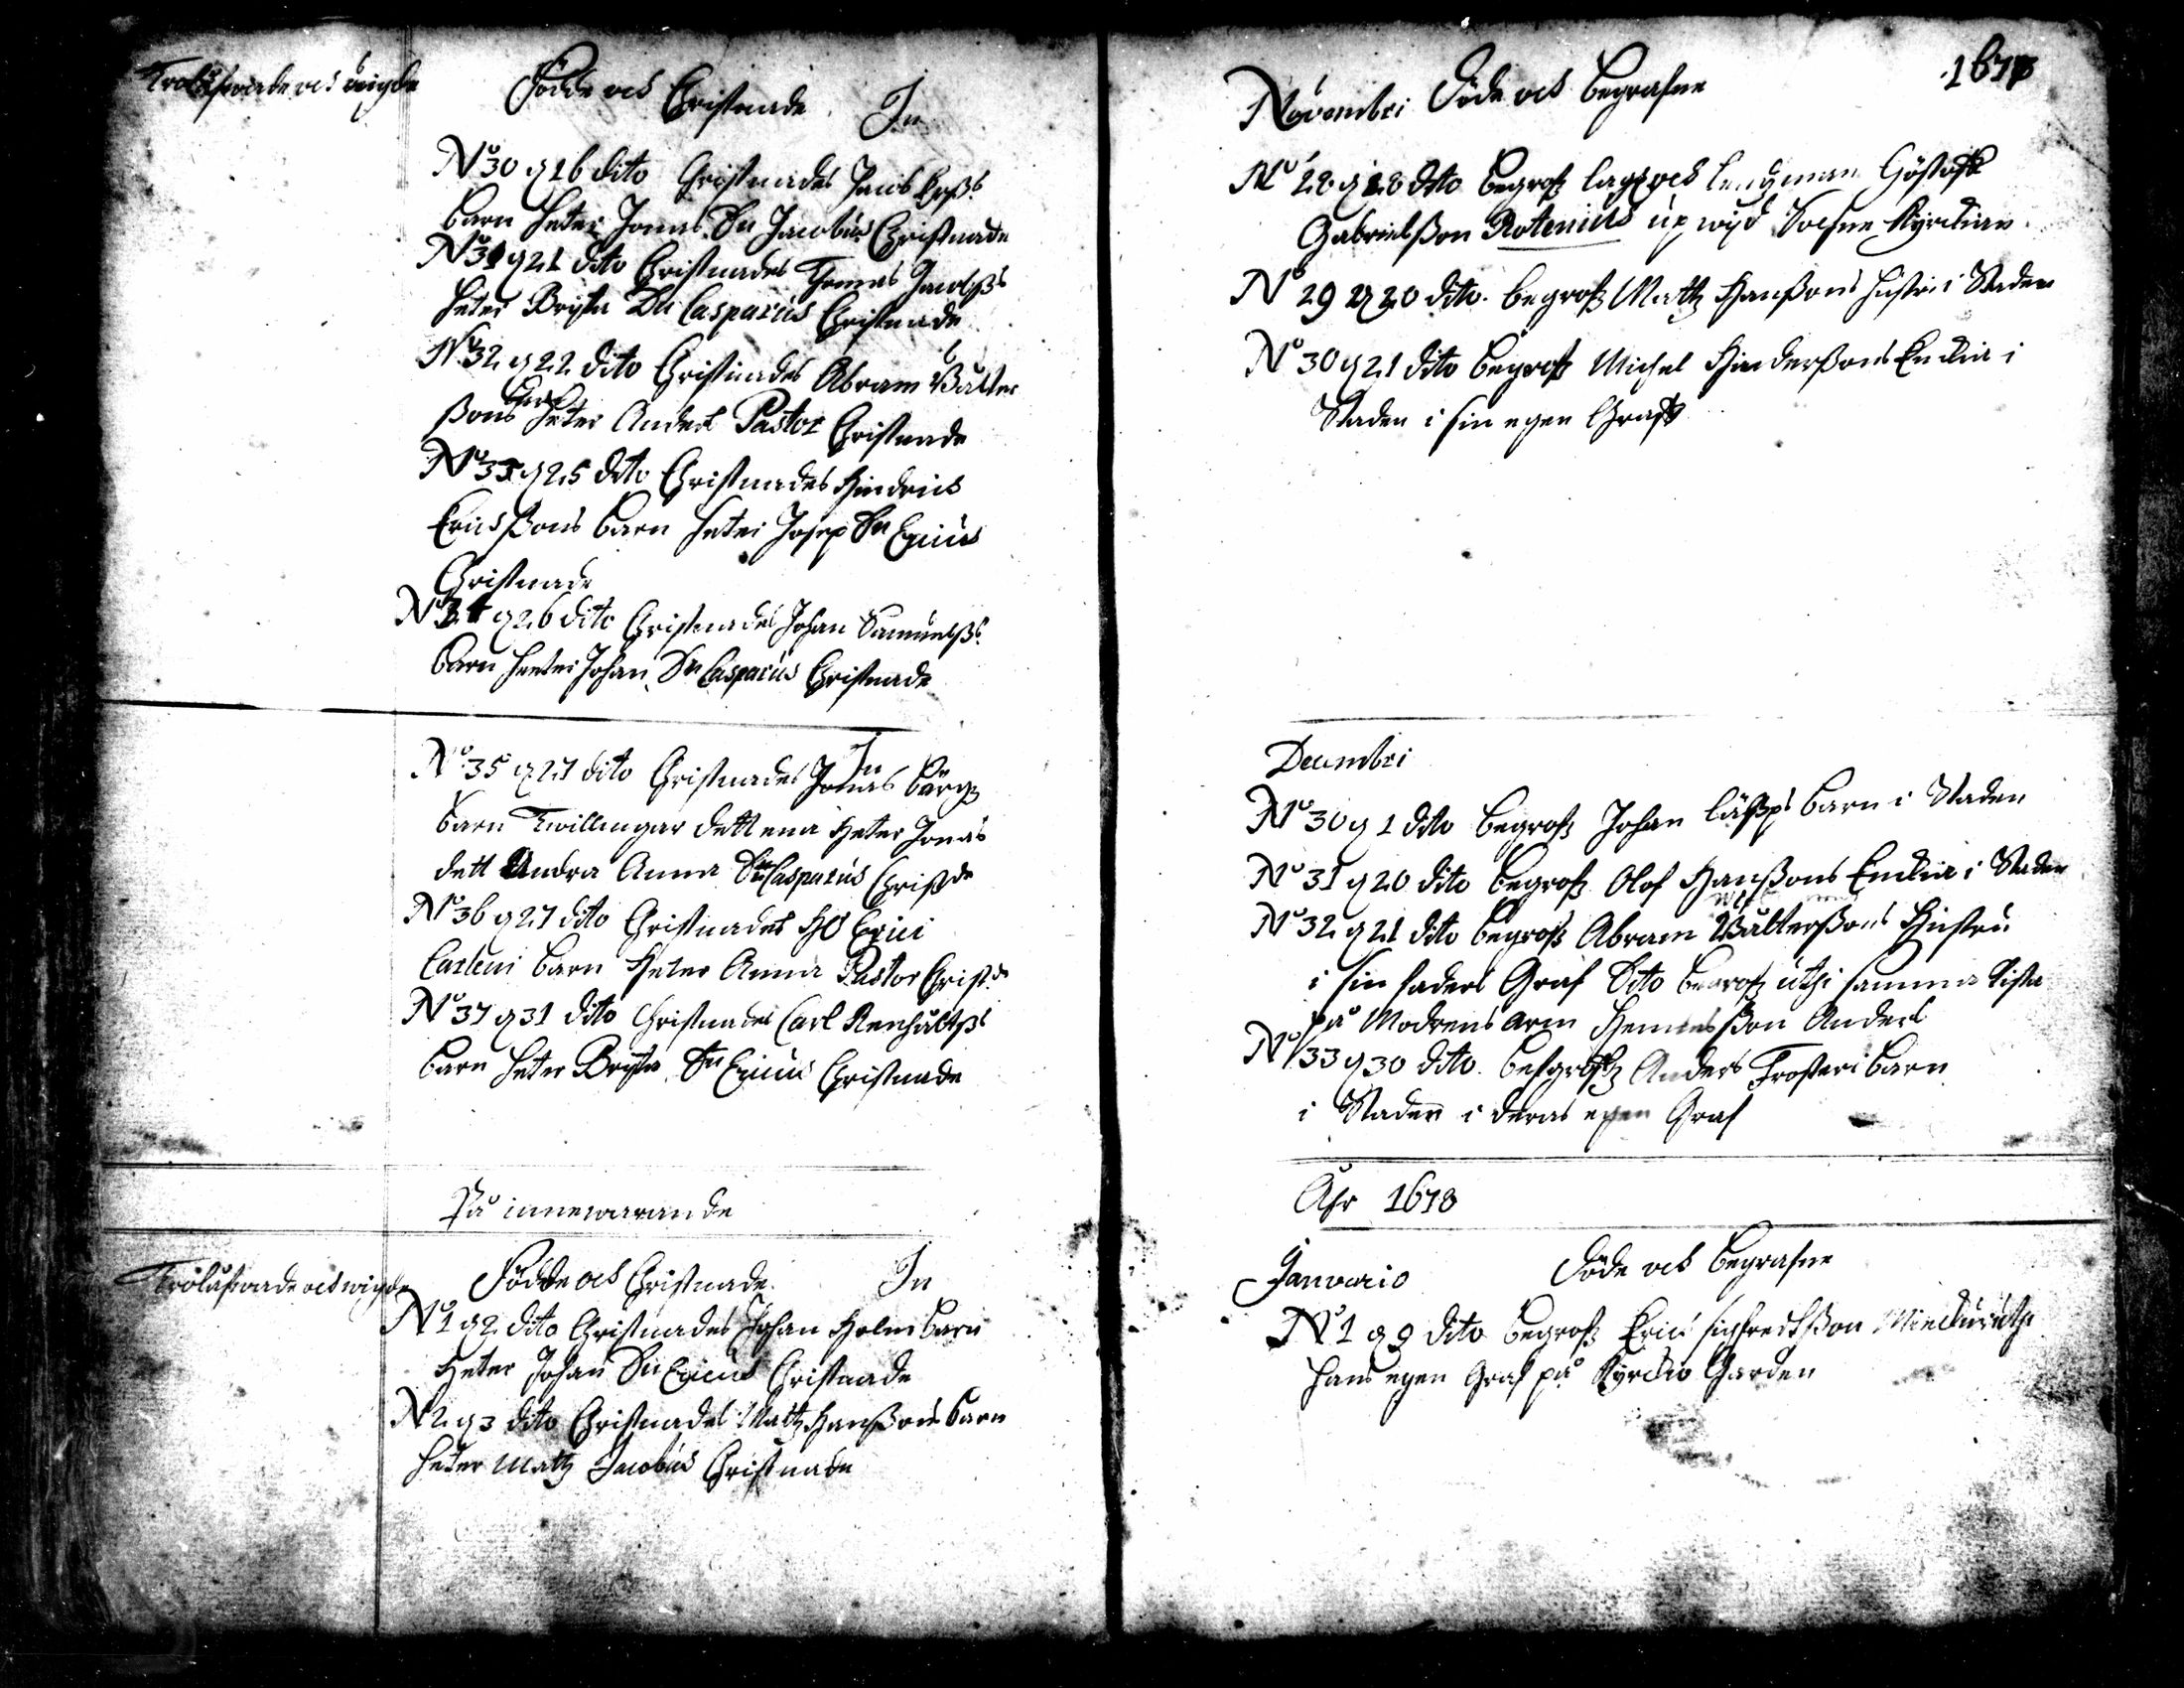 Trolåfwade och wigde
Födde och Christnade. In
No 30 d 16 dito Christnades Jacob
barn heter Jonas Dn Jacobus Christnade
No 31 d 21 dito Christnades Thomas Jacobßs
heter Brijta Dn Casparus Christnade
No 32 d 22 dito Christnades Abram Valter
ßons barn heter Anders Pastor Christnade
No 33 d 25 dito Christnades Hindrich
Erichßons barn heter Josep Dn Ericus
Christnade
No 34 d 26 dito Christnades Johan Samuelßs
barn heeter Johan Dn Casparus Christnade
In
No 35 d 27 dito Christnades Jonas bärgz
barn Twillingar dett ena heter Jonas
dett Andra Anna Dn Casparus Christde
No 36 d 27 dito Christnades Hr Erici
Carleni barn Heter Anna Pastor Christde
No 37 d 31 dito Christnades Carl
barn heter Brijta Dn Ericus Christnade
På innewarande
Trolåfwade och wigde
Födde och Christnade. In
No 1 d 2 dito Christnades Johan Holms barn
Heter Johan Dn Ericus Christnade
N 2 d 3 dito Christnades Mattz Hanßons barn
heter Mattz Jacobus Christnade
Novembri Döde och begrafne 1677
No 28 d 18 dito begrofz
Gabrielßon Rotenius up wijd Sochne Kyrckian
No 29 d 20 dito. begrofz Mattz Hanßons hustru i Staden
No 30 d 21 dito begrofz Michel Hinderßons Enckia i
Staden i sin egen Graff
Decembri
No 30 d 1 dito begrofz Johan barn i Staden
No 31 d 20 dito begrofz Olof Hanßons Enckia i Staden
No 32 d 21 dito begrofz Abram Valterßons Hustru
i sin faders Graf Dito begrofz uthi samma kista
på Modrens arm Hennes ßon Anders
No 33 d 30 dito. begrofz Anders barn
i Staden i deras egen Graf
Åhr 1678
Januario Döde och begrafne
No 1 d 9 dito begrofz Erich Sigfredhßon
hans egen Graf på Kyrckio Garden